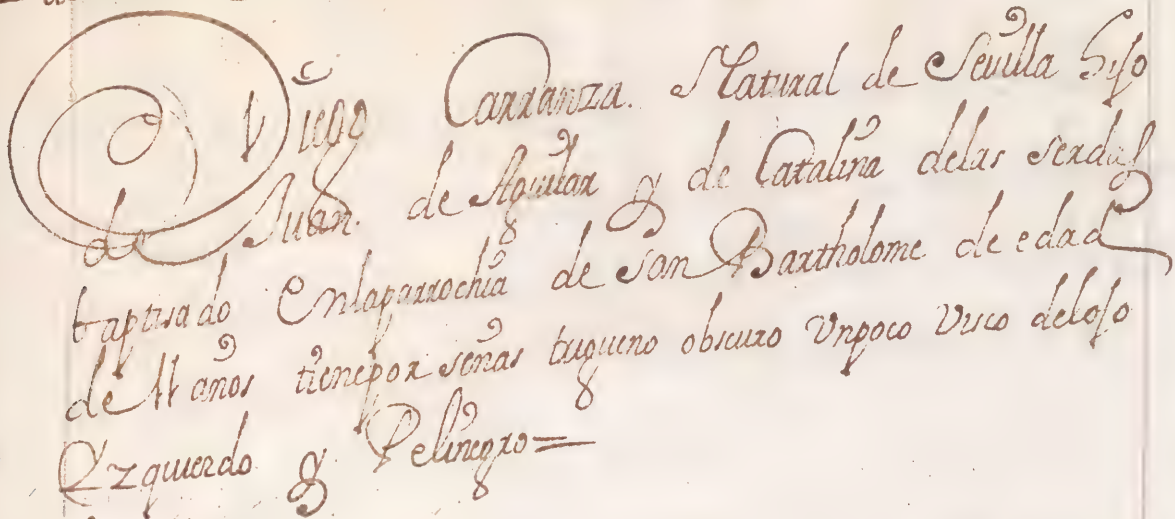 Diego Carranza. Natural de Sevilla Hijo
de Juan de Aguilar y de Catalina delas serdas
baptisado Enlaparrochia de San Bartholome de edad
de 11 años tienepor señas trigueno obscuro Unpoco Visco delojo
Yzquierdo y Pelinegro=